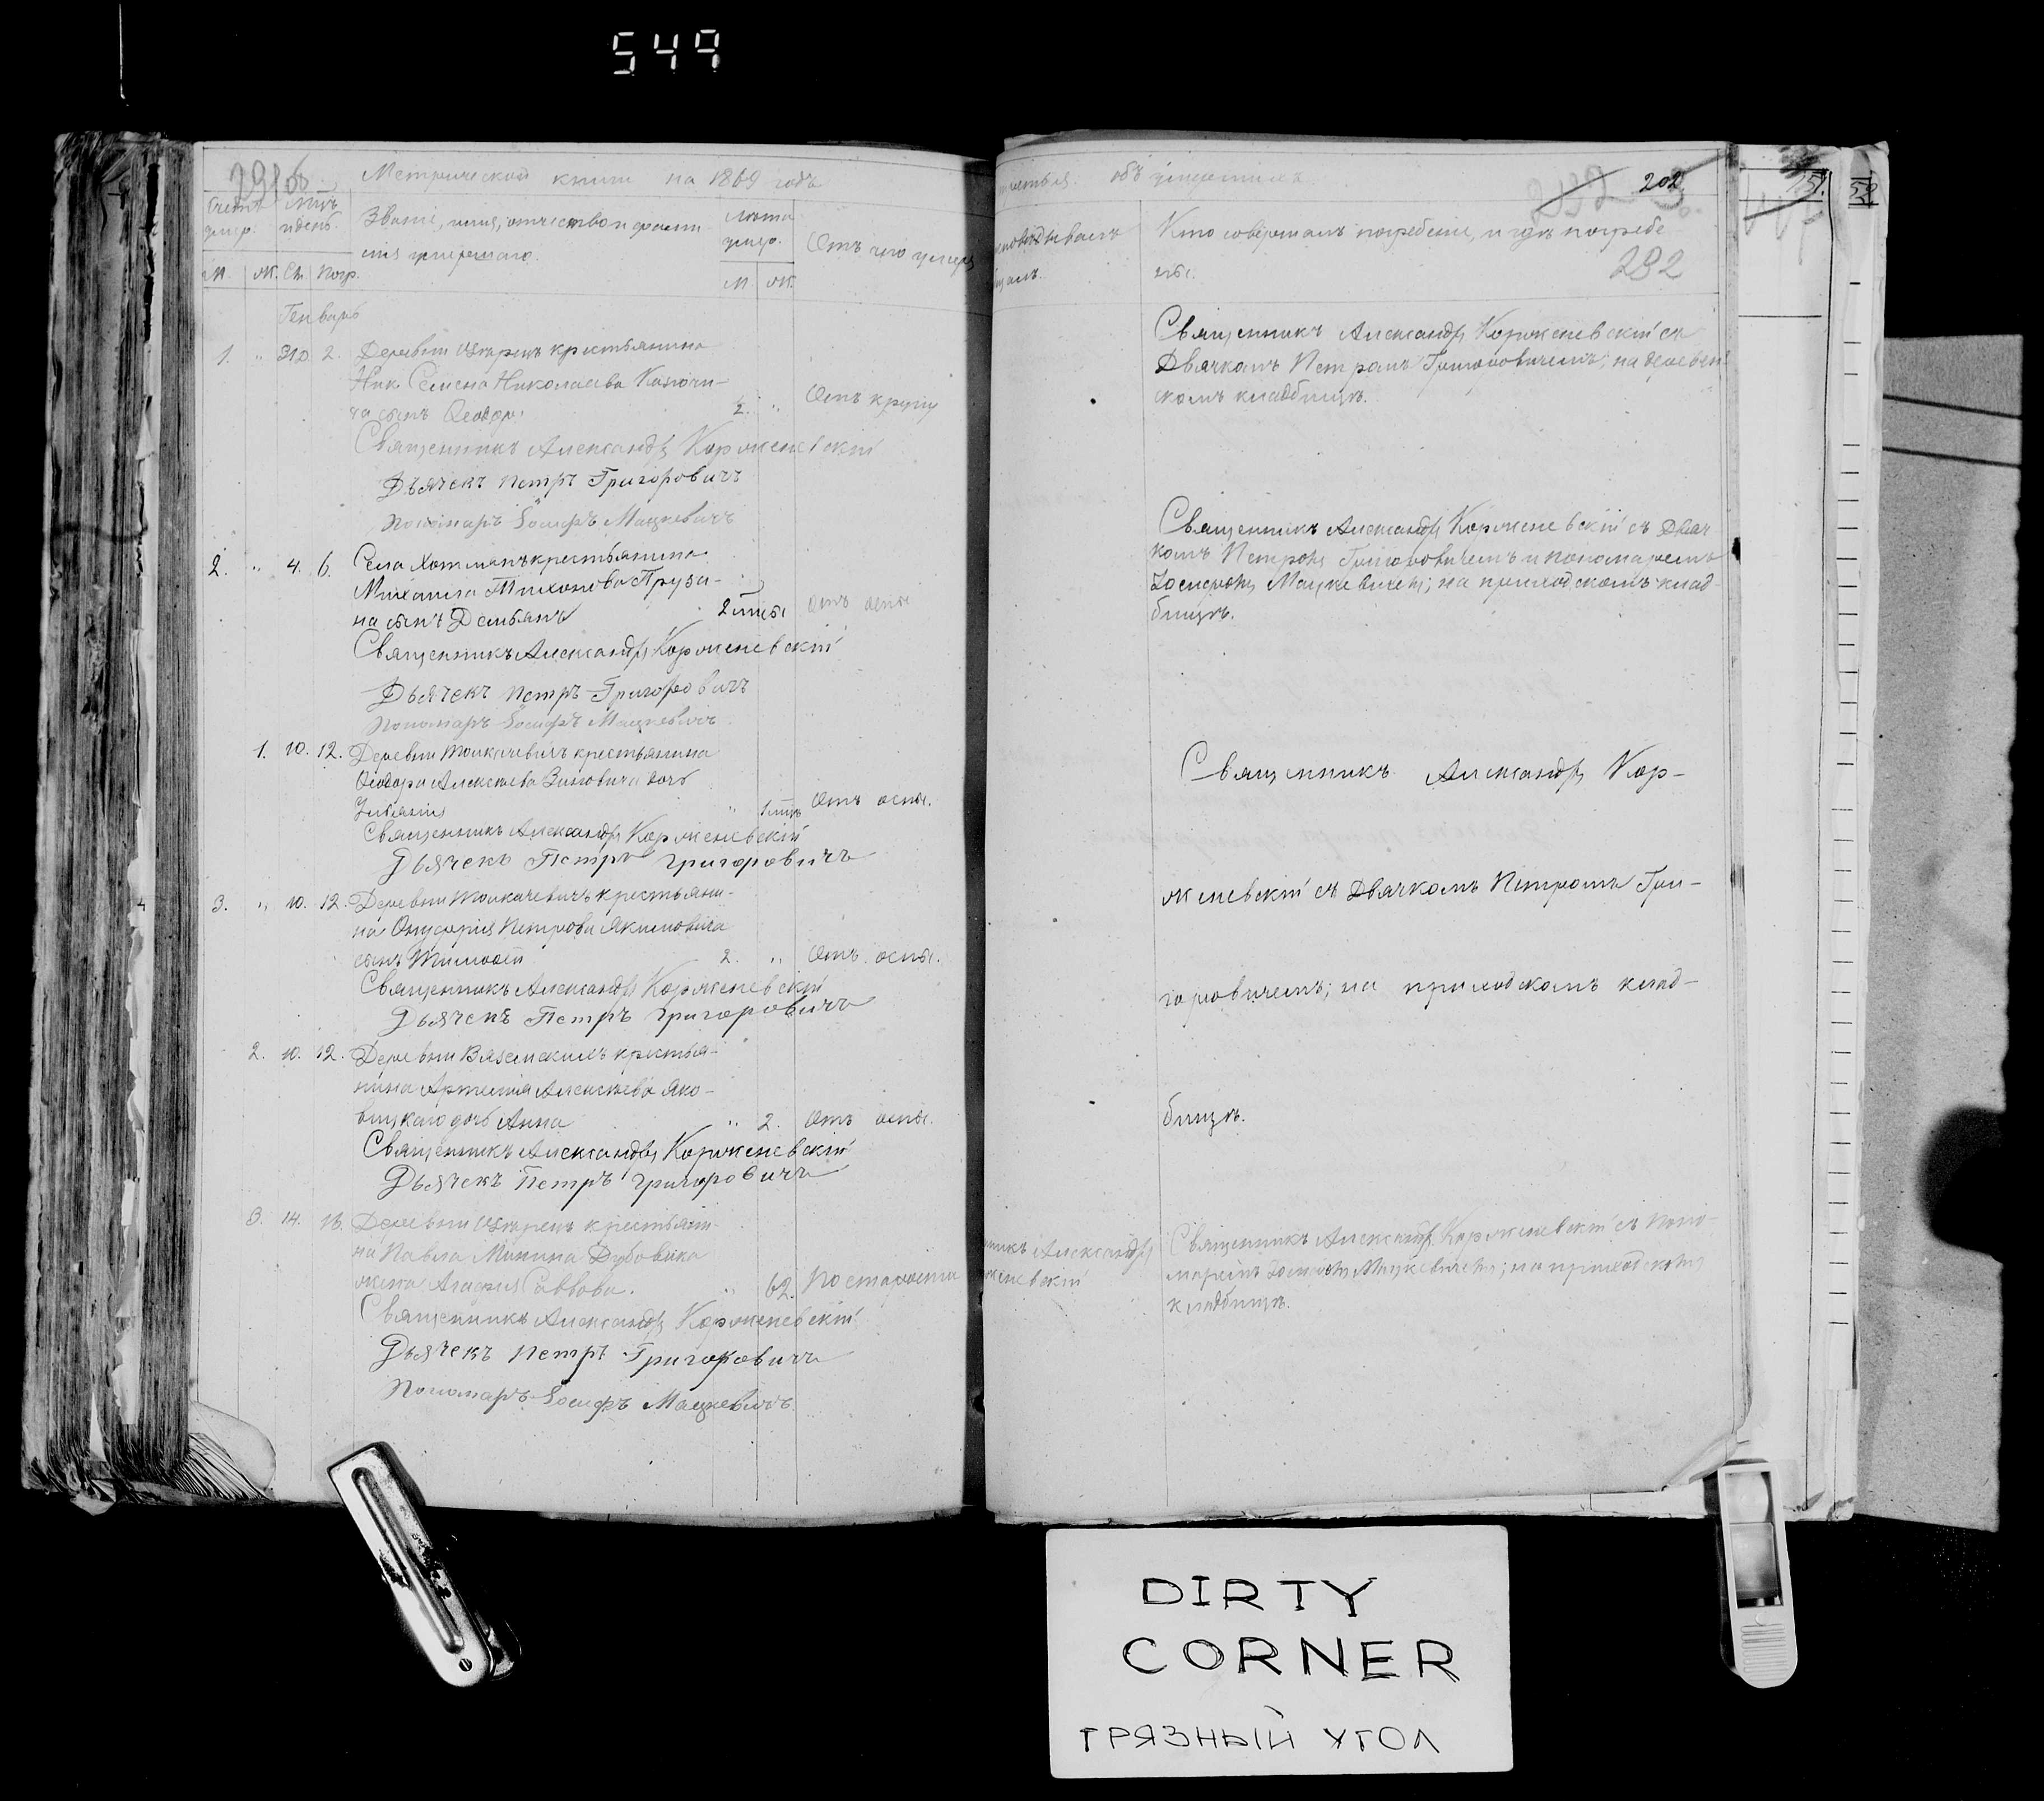 549
Метрической книги на 1869 годъ
Счетъ умер.
Мѣс. и день.
Званіе, имя, отчество и фами
лія умершаго.
Лѣта умер.
Отъ чего умеръ
М. Ж. См. Погр.
М. Ж.
Генварь
1. " 31д. 2. Деревни крестьянина
Семена Николаева
на сынъ Ѳеодоръ 2. " Отъ крупу
Священникъ Александръ Корженевскій
Дьячекъ Петръ Григоровичъ
Пономарь Іосифъ Мацкевичъ
2. " 4. 6. Села крестьянина
Михаила Тихонова Прузы-
на сынъ Демьянъ Отъ оспы
Священникъ Александръ Корженевскій
Дьячекъ Петръ Григоровичъ
Пономарь Іосифъ Мацкевичъ
1. 10. 12. Деревни Толкачевичъ крестьянина
Ѳеодора Алексѣева дочь
" Отъ оспы.
Священникъ Александръ Корженевскій
Дьячекъ Петръ Григоровичъ
3. " 10. 12. Деревни Толкачевичъ крестьяни-
на Онуфрія Петрова Якимовича
сынъ Тимоѳей 2. " Отъ оспы.
Священникъ Александръ Корженевскій
Дьячекъ Петръ Григоровичъ
2. 10. 12. Деревни крестья-
нина Артемія Алексѣева Яко-
дочь Анна " 2. Отъ оспы.
Священникъ Александръ Корженевскій
Дьячекъ Петръ Григоровичъ
3. 14. 16. Деревни крестьяни-
на Павла Минина Дубовика
жена Агафія Саввова. " 62. По старости
Священникъ Александръ Корженевскій
Дьячекъ Петръ Григоровичъ
Пономарь Іосифъ Мацкевичъ
объ умершихъ
202
232
Кто совершалъ погребеніе, и гдѣ погребе
ны.
Священникъ Александръ Корженевскій съ
Дьячкомъ Петромъ Григоровичемъ; на деревен
скомъ кладбищѣ.
Священникъ Александръ Корженевскій съ Дьяч
комъ Петромъ Григоровичемъ и пономаремъ
Іосифомъ Мацкевичемъ; на приходскомъ клад-
бищѣ.
Священникъ Александръ Кор-
женевскій съ Дьячкомъ Петромъ Гри-
горовичемъ; на приходскомъ клад-
бищѣ.
никъ Александръ
женевскій
Священникъ Александръ Корженевскій съ поно-
маремъ Іосифомъ Мацкевичемъ; на приходскомъ
кладбищѣ.
DIRTY
CORNER
ГРЯЗНЫЙ УГОЛ